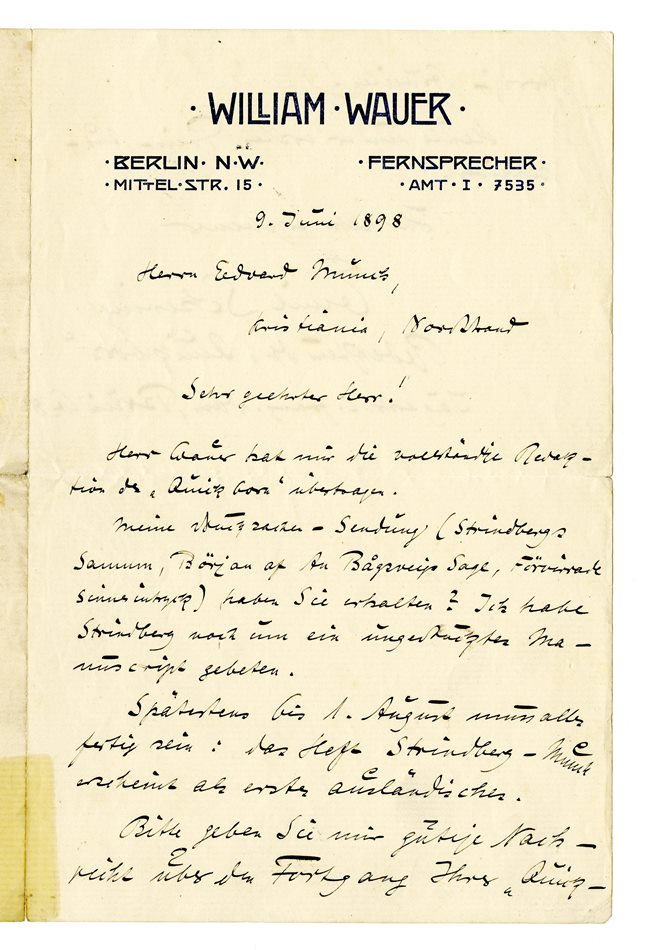 · WILLIAM · WAUER ·
· BERLIN · N · W · · FERNSPRECHER ·
· MITTEL · STR. 15 · · AMT · I · 7535 ·
9. Juni 1898
Herrn Eedvard Munch,
Kristiania, Nordstrand
Sehr geehrter Herr!
Herr Wauer hat mir die vollständige Redak-
tion des „Quickborn" übertragen.
Meine Drucksachen - Sendung (Strindbergs
Samum, Början af An Bågsveigs Saga, Förvirrade
Sinnesintryck) haben Sie erhalten? Ich habe
Strindberg noch um ein ungedrucktes Ma-
nuscript gebeten.
Spätestens bis 1. August muss alles
fertig sein: das Heft Strindberg - Munch
erscheint als erstes ausländisches.
Bitte geben Sie mir gütige Nach-
richt über den Fortgang Ihres „Quick-